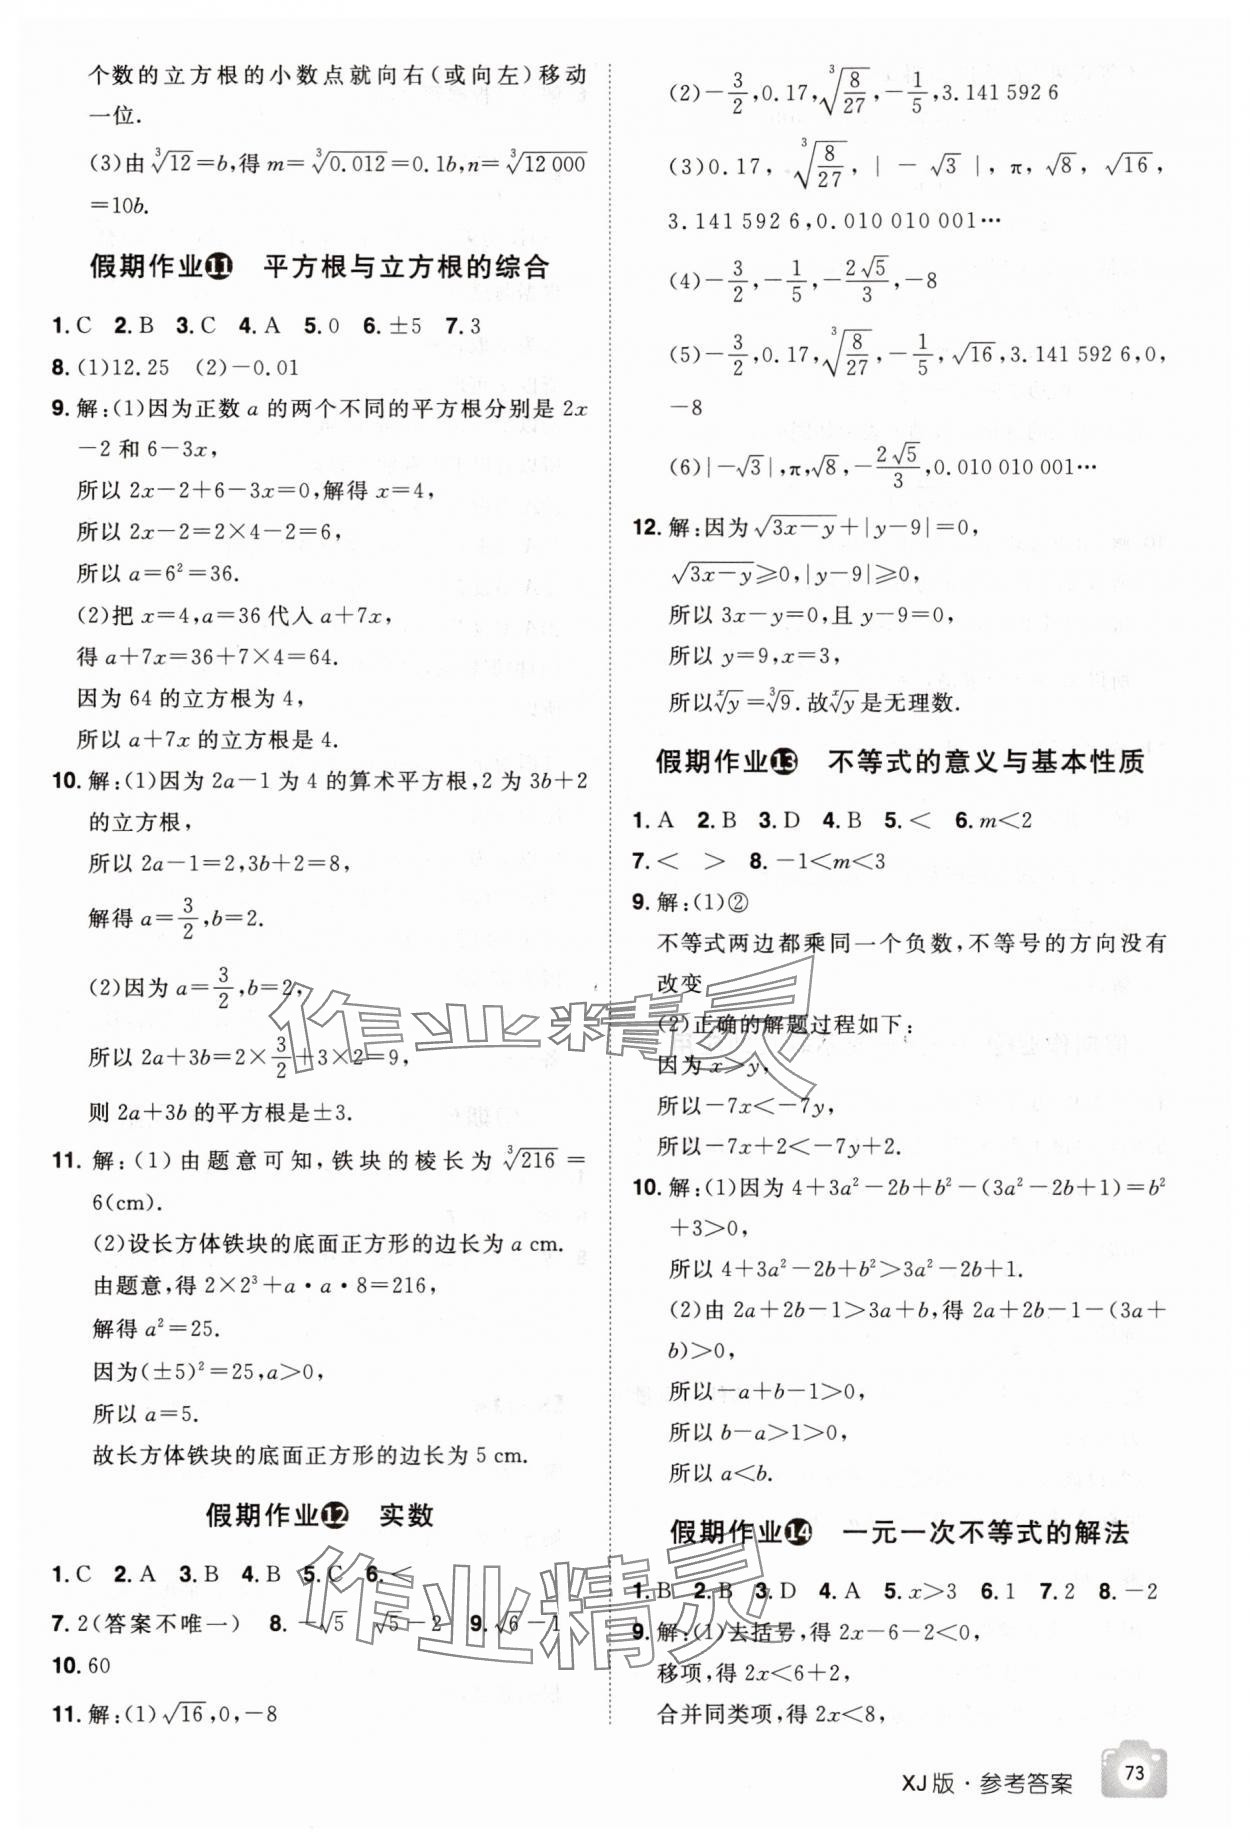 个数的立方根的小数点就向右(或向左)移动
一位.
(3)由∛12=b,得 m=∛0.012=0.1b,n=∛12 000
=10b.
假期作业⓫ 平方根与立方根的综合
1.C 2.B 3.C 4.A 5.0 6.±5 7.3
8.(1)12.25 (2)-0.01
9.解:(1)因为正数 a 的两个不同的平方根分别是 2x
-2 和 6-3x,
所以 2x-2+6-3x=0,解得 x=4,
所以 2x-2=2×4-2=6,
所以 a=6²=36.
(2)把 x=4,a=36 代入 a+7x,
得 a+7x=36+7×4=64.
因为 64 的立方根为 4,
所以 a+7x 的立方根是 4.
10.解:(1)因为 2a-1 为 4 的算术平方根,2 为 3b+2
的立方根,
所以 2a-1=2,3b+2=8,
解得 a=3/2,b=2.
(2)因为 a=3/2,b=2,
所以 2a+3b=2×3/2+3×2=9,
则 2a+3b 的平方根是±3.
11.解:(1)由题意可知,铁块的棱长为∛216=
6(cm).
(2)设长方体铁块的底面正方形的边长为 a cm.
由题意,得 2×2³+a·a·8=216,
解得 a²=25.
因为(±5)²=25,a>0,
所以 a=5.
故长方体铁块的底面正方形的边长为 5 cm.
假期作业⓬ 实数
1.C 2.A 3.B 4.B 5.C 6.<
7.2(答案不唯一) 8.-√5 √5-2 9.√6-1
10.60
11.解:(1)√16,0,-8
(2)-3/2,0.17,∛(8/27),-1/5,3.141 592 6
(3)0.17,∛(8/27),|-√3|,π,√8,√16,
3.141 592 6,0.010 010 001…
(4)-3/2,-1/5,-2√5/3,-8
(5)-3/2,0.17,∛(8/27),-1/5,√16,3.141 592 6,0,
-8
(6)|-√3|,π,√8,-2√5/3,0.010 010 001…
12.解:因为√(3x-y)+|y-9|=0,
√(3x-y)≥0,|y-9|≥0,
所以 3x-y=0,且 y-9=0,
所以 y=9,x=3,
所以ˣ√y=∛9.故ˣ√y是无理数.
假期作业⓭ 不等式的意义与基本性质
1.A 2.B 3.D 4.B 5.< 6.m<2
7.< > 8.-1<m<3
9.解:(1)②
不等式两边都乘同一个负数,不等号的方向没有
改变
(2)正确的解题过程如下:
因为 x>y,
所以-7x<-7y,
所以-7x+2<-7y+2.
10.解:(1)因为 4+3a²-2b+b²-(3a²-2b+1)=b²
+3>0,
所以 4+3a²-2b+b²>3a²-2b+1.
(2)由 2a+2b-1>3a+b,得 2a+2b-1-(3a+
b)>0,
所以-a+b-1>0,
所以 b-a>1>0,
所以 a<b.
假期作业⓮ 一元一次不等式的解法
1.B 2.B 3.D 4.A 5.x>3 6.1 7.2 8.-2
9.解:(1)去括号,得 2x-6-2<0,
移项,得 2x<6+2,
合并同类项,得 2x<8,
XJ版·参考答案 73
作业精灵
作业精灵